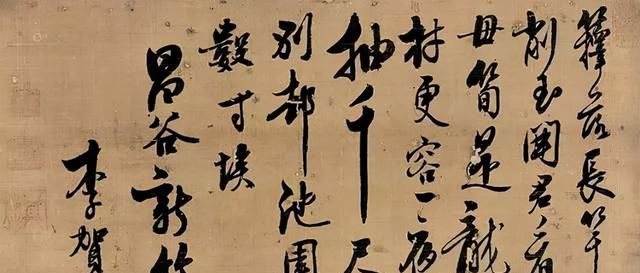 籜落長竿
削玉開君看
母筍是龍
材更容一夜
抽千尺
别却池園
數寸埃
昌谷新
李賀